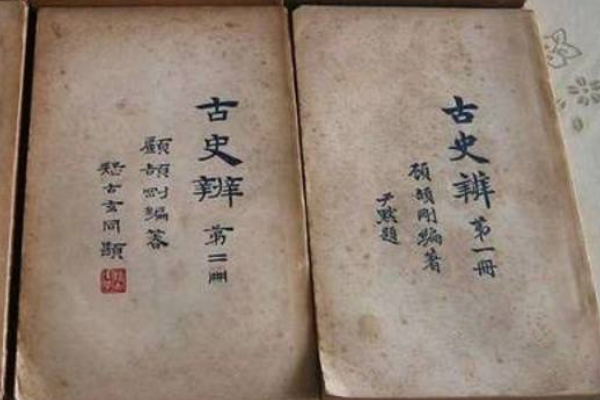 古史辨 第一冊
顧頡剛編著
尹默題
古史辨 第二冊
顧頡剛編著
疑古玄同題